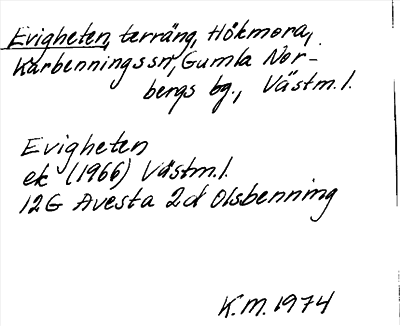 Evigheten, terräng, Hökmora,
Karbenningssn, Gumla Nor-
bergs bg., Västm.l.
Evigheten
ek (1966) Västm.l.
12G Avesta 2d Olsbenning
K.M. 1974